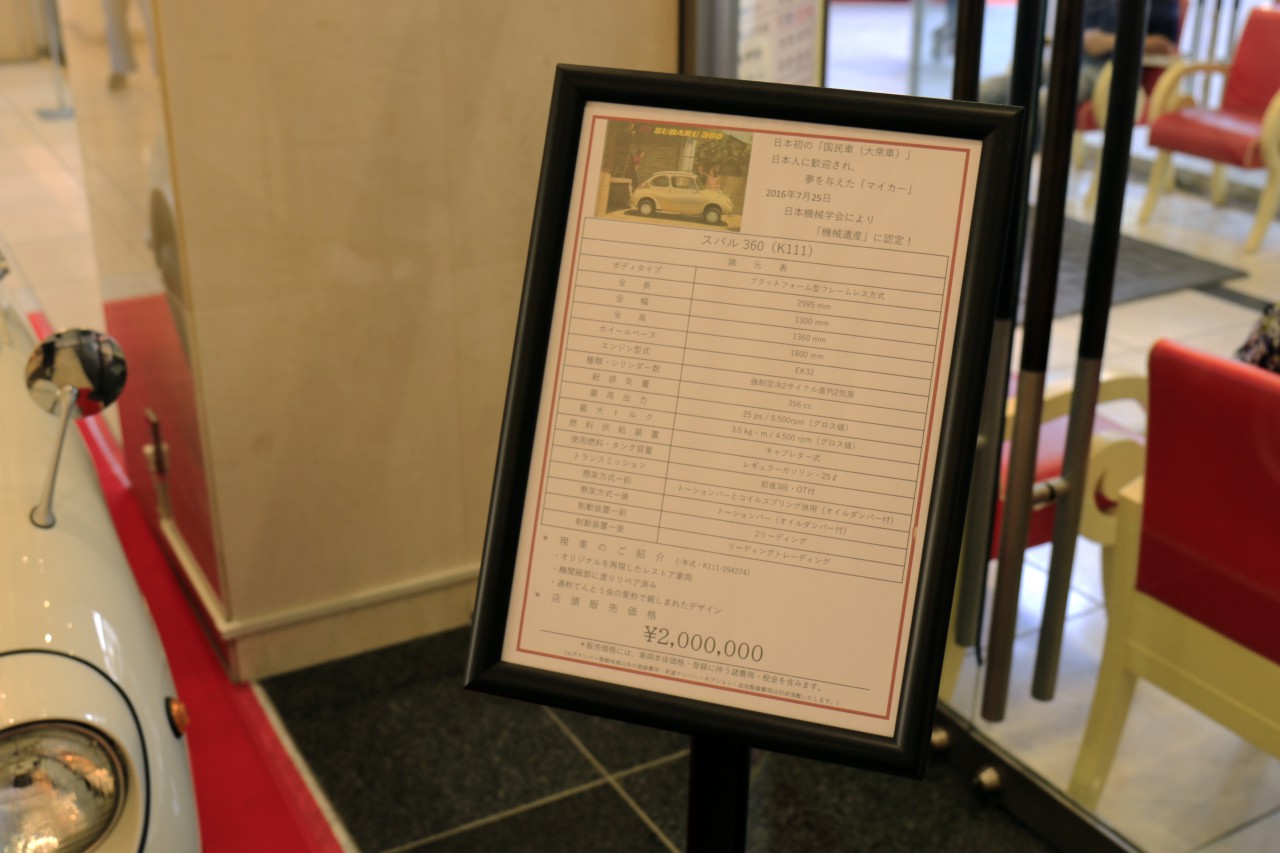 SUBARU 360
日本初の「国民車（大衆車）」
日本人に歓迎され、
夢を与えた「マイカー」
2016年7月25日
日本機械学会により
「機械遺産」に認定！
スバル 360（K111）
諸 元 表
ボディタイプ プラットフォーム型フレームレス方式
全 長 2995 mm
全 幅 1300 mm
全 高 1360 mm
ホイールベース 1800 mm
エンジン型式 EK32
種類・シリンダー数 強制空冷2サイクル直列2気筒
総 排 気 量 356 cc
最 高 出 力 25 ps / 5.500rpm（グロス値）
最 大 ト ル ク 3.5 kg・m / 4.500 rpm（グロス値）
燃 料 供 給 装 置 キャブレター式
使用燃料・タンク容量 レギュラーガソリン・25ℓ
トランスミッション 前進3段・OT付
懸架方式ー前 トーションバーとコイルスプリング併用（オイルダンパー付）
懸架方式ー後 トーションバー（オイルダンパー付）
制動装置ー前 2リーディング
制動装置ー後 リーディングトレーディング
* 現 車 の ご 紹 介 K111-294274）
・オリジナルを再現したレストア車両
・機関細部に渡りリペア済み
・通称てんとう虫の愛称で親しまれたデザイン
* 店 頭 販 売 価 格
¥2,000,000
*販売価格には、車両本体価格・登録に伴う諸費用・税金を含みます。